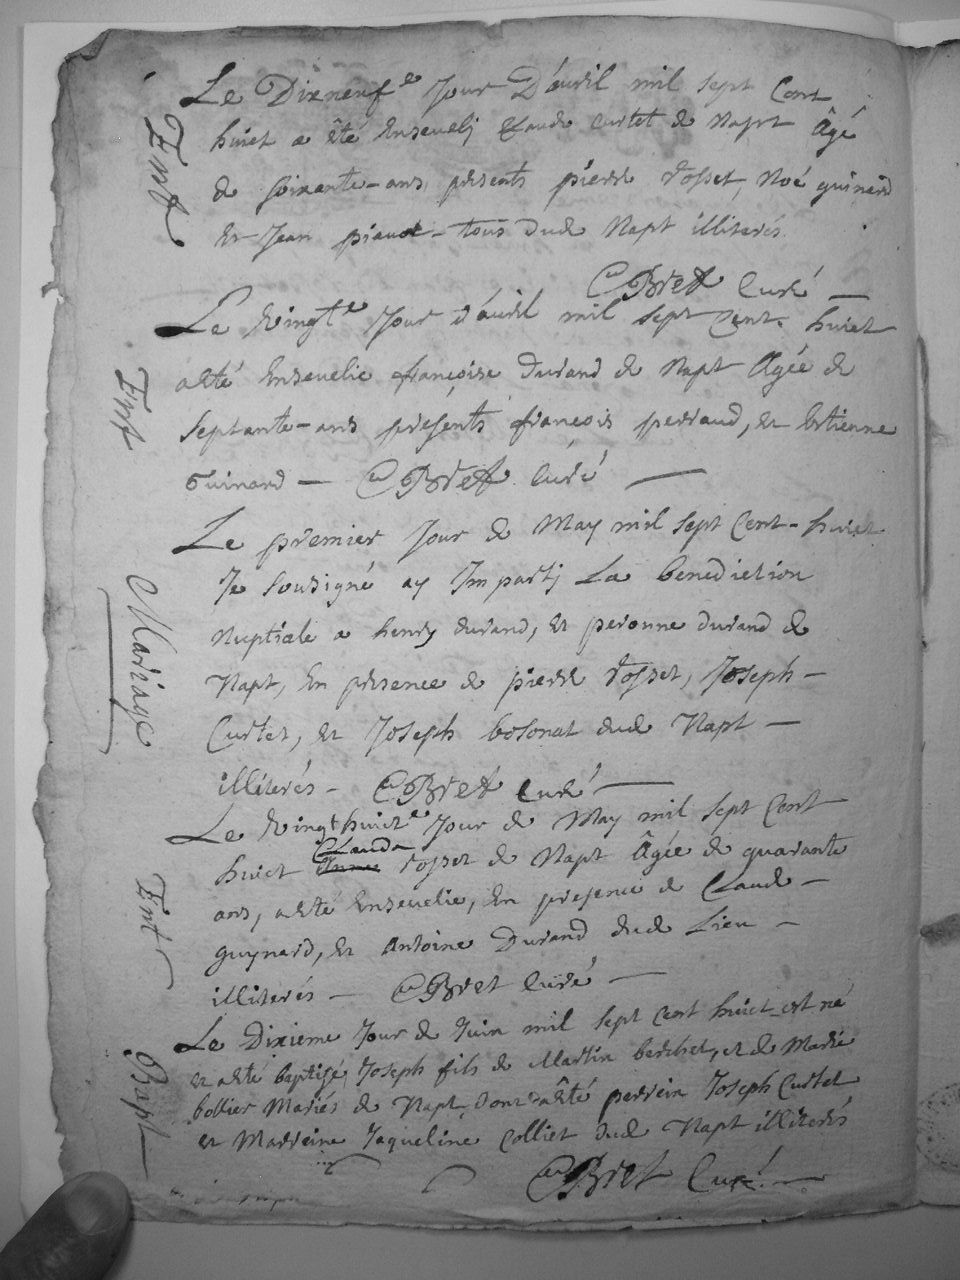 Le Dixneuf e Jour D'auril mil sept Cent
huict a êté Enseuelj Claude curtet de Napt Âgé
de soixante-ans, presents pierre rosset, Noé guinard
et Jean piauct - tous dud Napt illiterés.
CBret Curé
Ent
Le vingt e Jour d'auril mil sept Cent huict
a êté Enseuelie françoise Durand de Napt Agée de
septante-ans présents françois perraud, et Estienne
Guinard - CBret curé
Ent
Le premier Jour de May mil sept Cent-huict
Je sousigné ay Impartj La benediction
Nuptiale a henry durand, et peronne durand de
Napt, En presence de pierre rosset, Joseph
Curtet, et Joseph bosonat dud Napt
illiterés - CBret curé
Mariage
Le vingt huict e Jour de May mil sept Cent
Clauda
huict Annee rosset de Napt Âgée de quarante
ans, a êté Enseuelie, En presence de Claude
guynard, et Antoine Durand dud Lieu
illiterés - CBret curé
Ent
Le Dixieme Jour de Juin mil sept Cent huict est né
et a êté baptisé Joseph fils de Martin berchet, et de Marie
bollier Mariés de Napt, dont a êté parrein Joseph Curtet
et Marreine Jaqueline Colliet dud Napt illiterés
Bapt
CBret Curé